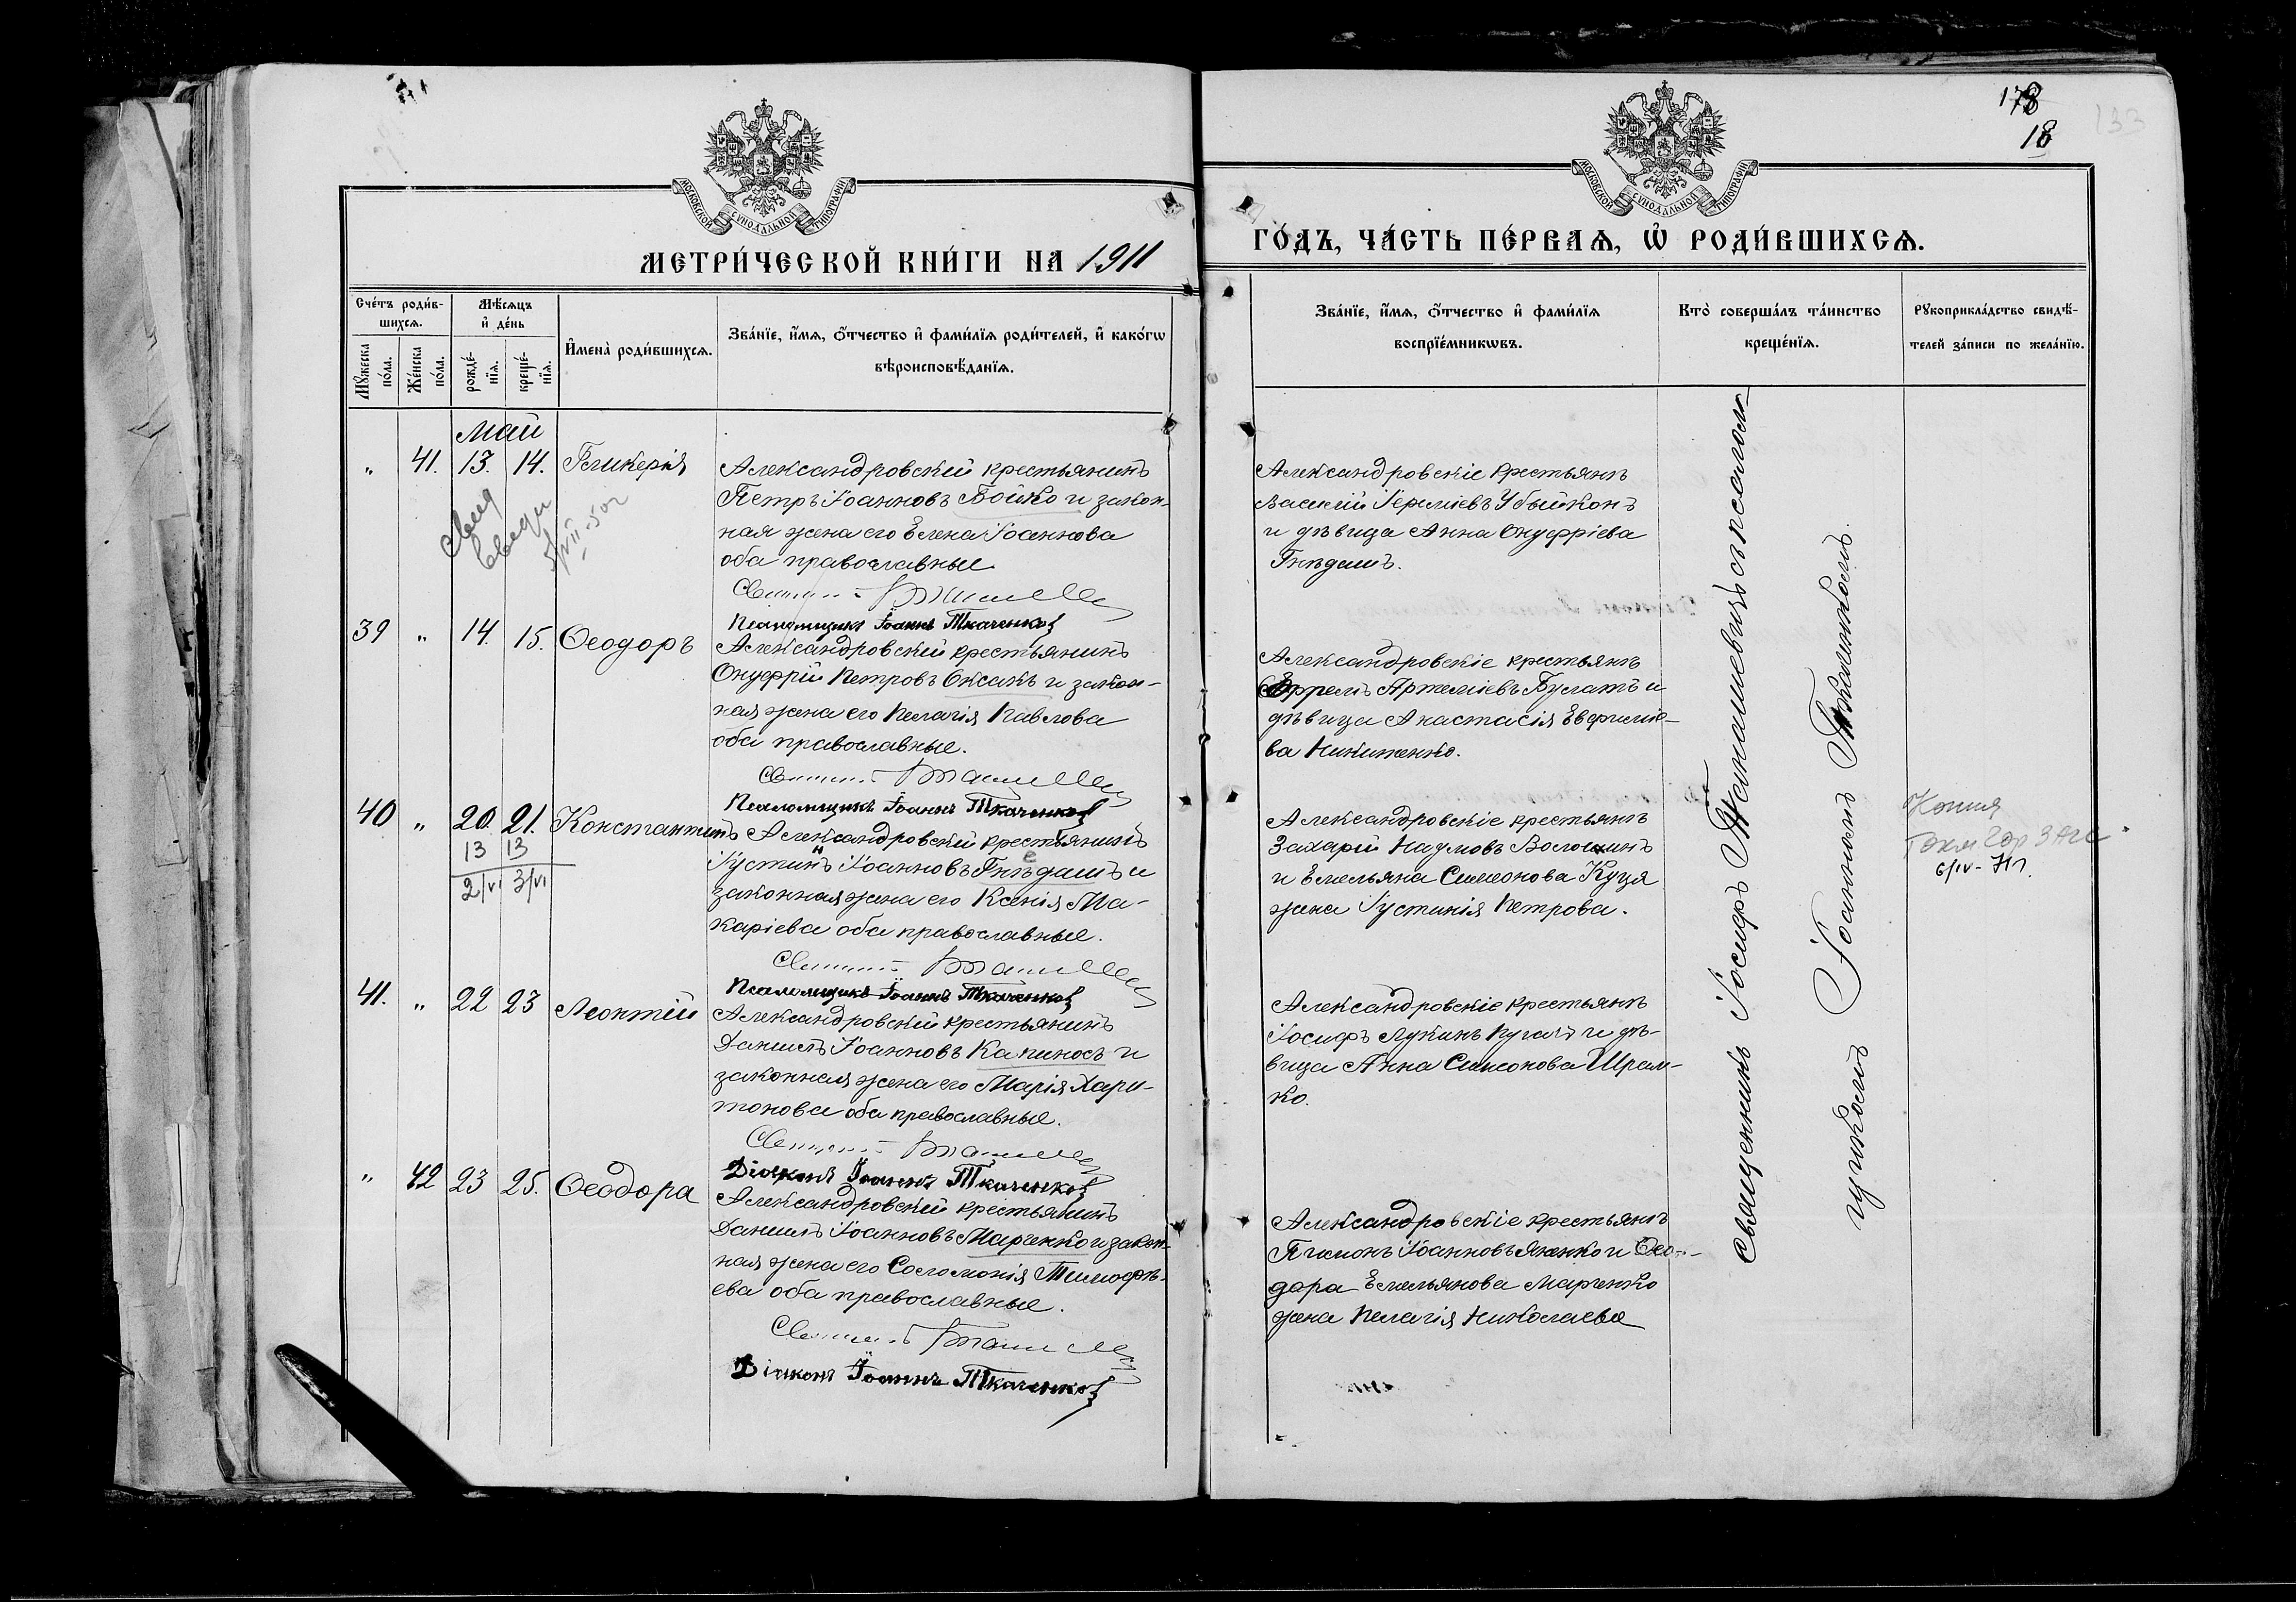 178
18
133
МОСКОВСКОЙ СѴНОДАЛЬНОЙ ТИПОГРАФІИ
МОСКОВСКОЙ СѴНОДАЛЬНОЙ ТИПОГРАФІИ
МЕТРИ́ЧЕСКОЙ КНИ́ГИ НА 1911
ГО́ДЪ, ЧА́СТЬ ПЕ́РВАѦ, Ѡ҆ РОДИ́ВШИХСѦ.
Сче́тъ роди́в-
шихсѧ.
Мꙋ́жеска по́ла.
Же́нска по́ла.
Мѣ́сѧцъ
и҆ де́нь
рожде́-
нїѧ.
креще́-
нїѧ.
И҆мена̀ роди́вшихсѧ.
Зва́нїе, и҆́мѧ, ѻ҆́тчество и҆ фами́лїѧ роди́телей, и҆ како́гѡ
вѣроисповѣ́данїѧ.
Зва́нїе, и҆́мѧ, ѻ҆́тчество и҆ фами́лїѧ
воспрїе́мникѡвъ.
Кто̀ соверша́лъ та́инство
креще́нїѧ.
Рꙋкоприкла́дство свидѣ́-
телей за́писи по жела́нїю.
май
" 41. 13. 14. Гликерія
Александровскій крестьянинъ
Петръ Іоанновъ Бойко и закон-
ная жена его Елена Іоаннова
оба православные.
Псаломщикъ Іоаннъ Ткаченко
Александровскіе крестьяне
Василій Іереміевъ Убыйконь
и дѣвица Анна Онуфріева
Гнѣдашъ.
39 " 14. 15. Ѳеодоръ
Александровскій крестьянинъ
Онуфрій Петровъ Оксакъ и закон-
ная жена его Пелагія Павлова
оба православные.
Псаломщикъ Іоаннъ Ткаченко
Александровскіе крестьяне
Ефремъ Артеміевъ Булатъ и
дѣвица Анастасія Евфиміе-
ва Никитенко.
40 " 20. 21. Константинъ
13 13
2/VI 3/VI
Александровскій крестьянинъ
Іустинъ Іоанновъ Гнѣдашъ и
законная жена его Ксенія Ма-
каріева оба православные.
Псаломщикъ Іоаннъ Ткаченко
Александровскіе крестьяне
Захарій Наумовъ Волошинъ
и Емельяна Симеонова Куця
жена Іустинія Петрова.
Копия
6/IV-71 г.
41. " 22 23 Леонтій
Александровскій крестьянинъ
Даніилъ Іоанновъ Капиносъ и
законная жена его Марія Хари-
тонова оба православные.
Діаконъ Іоаннъ Ткаченко
Александровскіе крестьяне
Іосифъ Лукинъ Пугачъ и дѣ-
вица Анна Симеонова Шрам-
ко.
" 42 23 25. Ѳеодора
Александровскій крестьянинъ
Даніилъ Іоанновъ Марченко и закон-
ная жена его Соломонія Тимофѣ-
ева оба православные.
Діаконъ Іоаннъ Ткаченко
Александровскіе крестьяне
Пименъ Іоанновъ Яненко и Ѳео-
дора Емельянова Марченко
жена Пелагія Николаева
Священникъ Іосифъ съ псаломъ-
щикомъ Іоанномъ Ткаченкомъ.